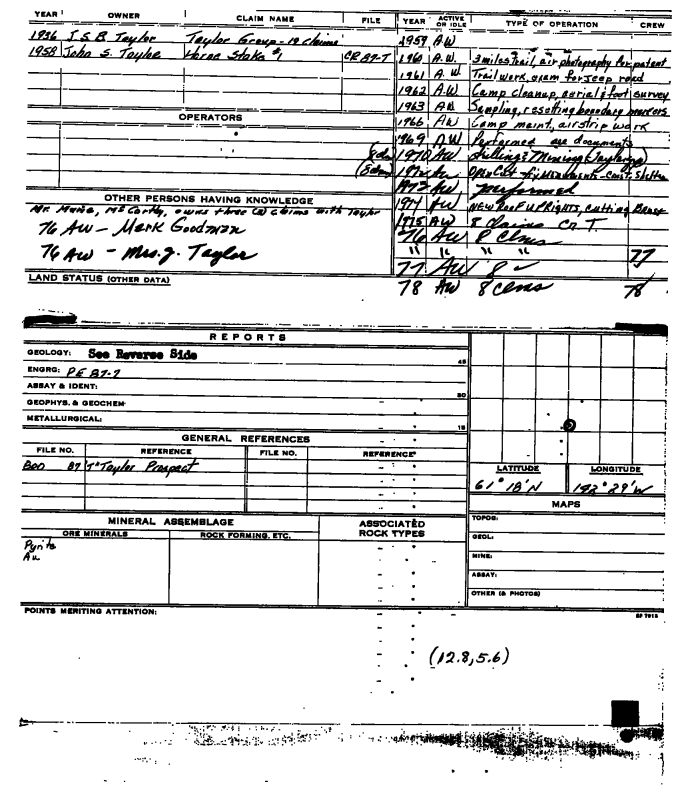 YEAR OWNER CLAIM NAME FILE
1936 J.S.B. Taylor Taylor Group - 19 claims
1958 John S. Taylor Horse Stake #1 CR 87-7
OPERATORS
OTHER PERSONS HAVING KNOWLEDGE
McCarthy, owns three (3) claims with Taylor
76 AW - Mark Goodman
76 AW - Mrs. J. Taylor
LAND STATUS (OTHER DATA)
YEAR ACTIVE OR IDLE TYPE OF OPERATION CREW
1959 AW
1960 A.W. 3 miles trail, air photography for patent
1961 A.W Trail work, exam for jeep road
1962 AW Camp cleanup, aerial & foot survey
1963 AW Sampling, resetting boundary markers
1966 AW Camp maint, airstrip work
1969 AW Performed see documents
1970 AW Drilling & Mining
Open Cut - Improvements - Const. Shelter
1973 AW performed
1974 AW New Roof uprights, cutting Brush
1975 AW 8 Claims Co T.
76 AW 8 Clms
" " " " 77
77 AW 8 ✓
78 AW 8 clms 78
REPORTS
GEOLOGY: See Reverse Side
45
ENGRG: PE 87-7
ASSAY & IDENT:
30
GEOPHYS. & GEOCHEM
METALLURGICAL:
15
GENERAL REFERENCES
FILE NO. REFERENCE FILE NO. REFERENCE
87 "T" Taylor Prospect
LATITUDE LONGITUDE
61° 18'N 142° 29'W
MAPS
MINERAL ASSEMBLAGE
ASSOCIATED ROCK TYPES
ORE MINERALS ROCK FORMING, ETC.
Pyrite
Au
TOPOG:
GEOL:
MINE:
ASSAY:
OTHER (& PHOTOS)
POINTS MERITING ATTENTION:
SF 7615
(12.8, 5.6)